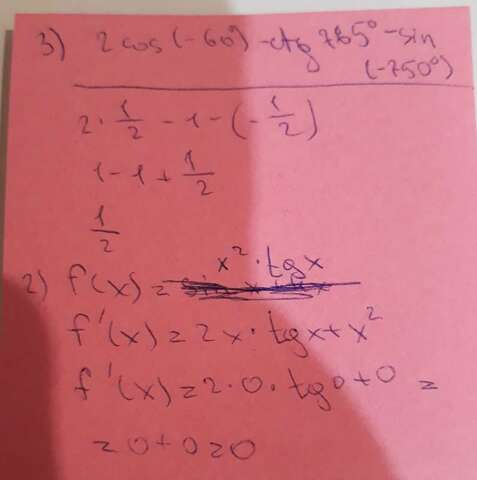 3) 2 cos(-60°) - ctg 765° - sin
(-750°)
2 · 1/2 - 1 - (- 1/2)
1 - 1 + 1/2
1/2
x² · tg x
2) f(x) =
f'(x) = 2x · tg x + x²
f'(x) = 2 · 0 · tg 0 + 0 =
= 0 + 0 = 0